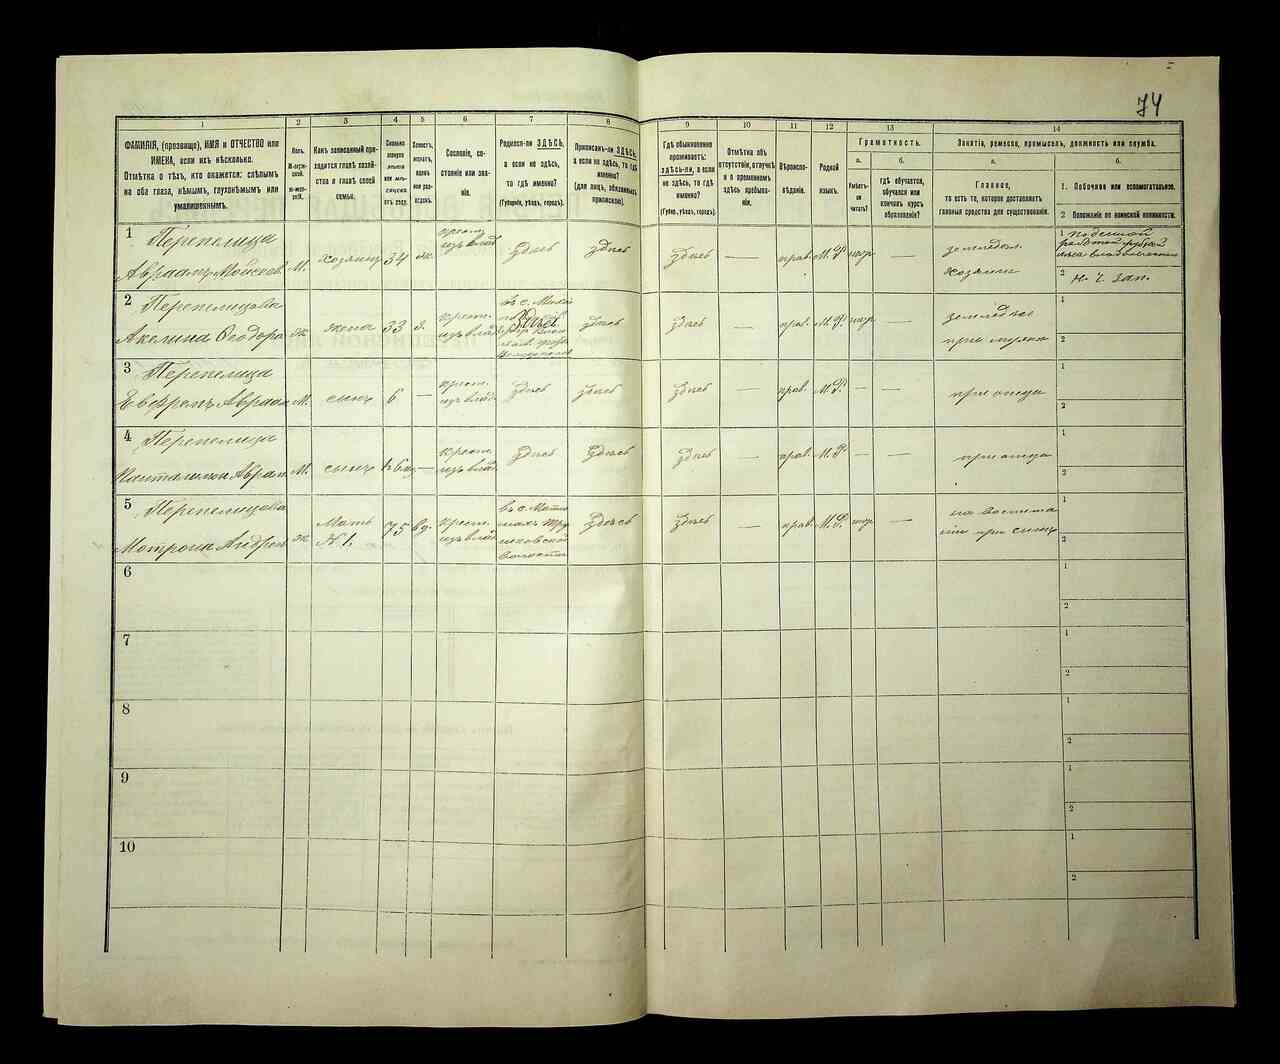 74
1 2 3 4 5 6 7 8 9 10 11 12 13 14
ФАМИЛІЯ, (прозвище), ИМЯ и ОТЧЕСТВО или
ИМЕНА, если ихъ нѣсколько.
Отмѣтка о тѣхъ, кто окажется: слѣпымъ
на оба глаза, нѣмымъ, глухонѣмымъ или
умалишеннымъ.
Полъ.
М-мужской.
Ж-женскій.
Какъ записанный при-
ходится главѣ хозяй-
ства и главѣ своей
семьи.
Сколько
минуло
лѣтъ
или мѣ-
сяцевъ
отъ роду.
Холостъ,
женатъ,
вдовъ
или раз-
веденъ.
Сословіе, со-
стояніе или зва-
ніе.
Родился-ли ЗДѢСЬ,
а если не здѣсь,
то гдѣ именно?
(Губернія, уѣздъ, городъ).
Приписанъ-ли ЗДѢСЬ,
а если не здѣсь, то гдѣ
именно?
(для лицъ, обязанныхъ
припискою).
Гдѣ обыкновенно
проживаетъ:
здѣсь-ли, а если
не здѣсь, то гдѣ
именно?
(Губер., уѣздъ, городъ).
Отмѣтка объ
отсутствіи, отлучкѣ
и о временномъ
здѣсь пребыва-
ніи.
Вѣроиспо-
вѣданіе.
Родной
языкъ.
Грамотность.
а. б.
Умѣетъ-
ли
читать?
гдѣ обучается,
обучался или
кончилъ курсъ
образованія?
Занятіе, ремесло, промыселъ, должность или служба.
а. б.
Главное,
то есть то, которое доставляетъ
главныя средства для существованія.
1. Побочное или вспомогательное.
2 Положеніе по воинской повинности.
1 Перепелица
Авраамъ Мойсеев М. хозяинъ 34 ж. крест. изъ влад. здѣсь здѣсь здѣсь — прав. М.Р. негр — земледѣл. хозяинъ
1 поденной
работой рубкой
лѣса
2 н. ч. зап.
2 Перепелицова
Акелина Ѳеодора ж. жена 33 з. крест. изъ влад. здѣсь здѣсь — прав. М.Р. негр — земледѣл. при мужѣ
въ с.
Здѣсь
1
2
3 Перепелица
Евфремъ Авраам М. сынъ 6 — крест. изъ влад. здѣсь здѣсь здѣсь — прав. М.Р. — — при отцѣ
1
2
4 Перепелица
Панталимон Аврам М. сынъ — крест. изъ влад. здѣсь здѣсь здѣсь — прав. М.Р. — — при отцѣ
1
2
5 Перепелицова
Мотрона Андрее ж. Мать № 1. 75 вд. крест. изъ влад. здѣсь здѣсь — прав. М.Р. негр —
въ с.
волости
при сынѣ
1
2
6
1
2
7
1
2
8
1
2
9
1
2
10
1
2